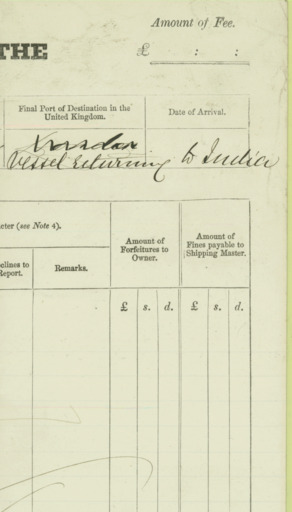 Amount of Fee.
THE
£ : :
Final Port of Destination in the
United Kingdom.
Date of Arrival.
London
Vessel returning to India
cter (see Note 4).
clines to
Report.
Remarks.
Amount of
Forfeitures to
Owner.
Amount of
Fines payable to
Shipping Master.
£ s. d. £ s. d.